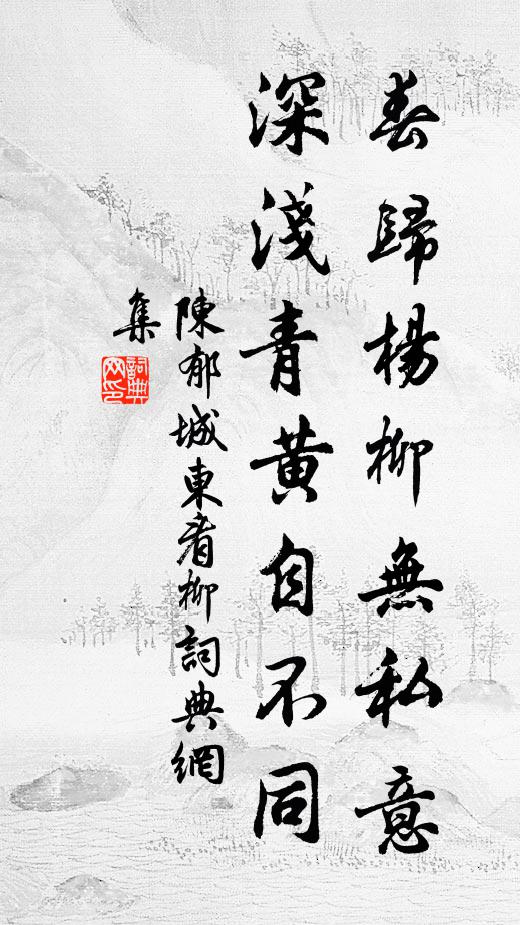 春歸楊柳無私意
深淺青黃自不同
陳郁城東看柳詞典網
集
詞典網印